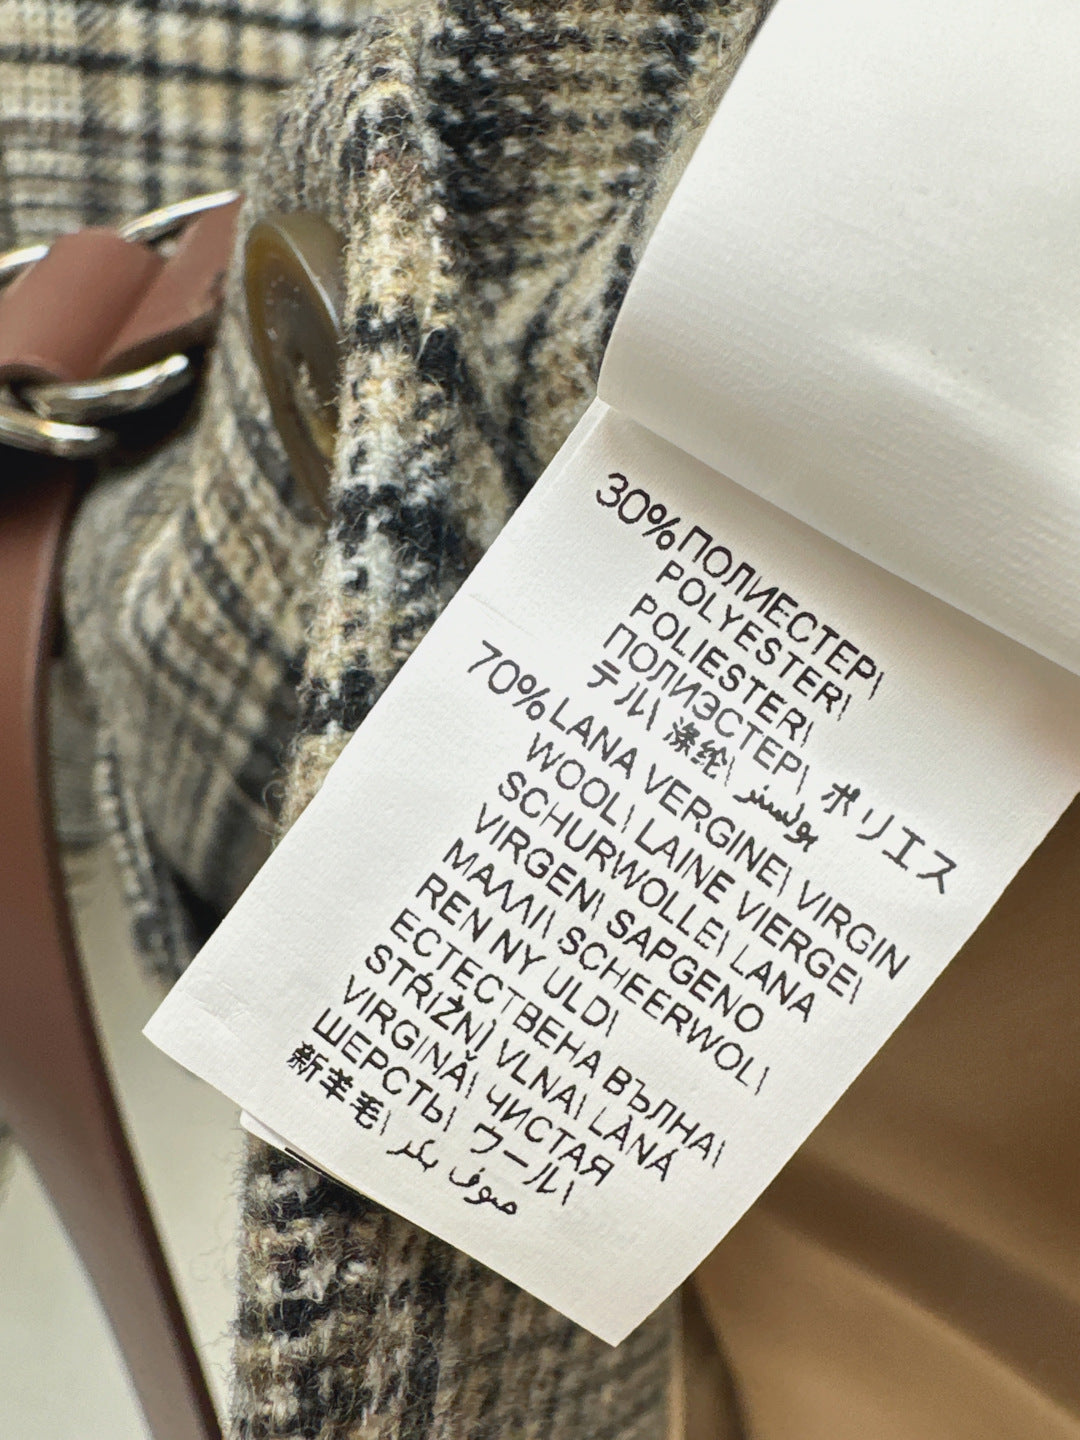 30% ПОЛИЕСТЕР\
POLYESTER\
POLIESTER\
ПОЛИЭСТЕР\ ポリエス
テル\ 涤纶\ بولستر
70% LANA VERGINE\ VIRGIN
WOOL\ LAINE VIERGE\
SCHURWOLLE\ LANA
VIRGEN\ SAPGENO
ΜΑΛΛΙ\ SCHEERWOL\
REN NY ULD\
ЕСТЕСТВЕНА ВЪЛНА\
STŘIŽNÌ VLNA\ LÀNÁ
VIRGINĂ\ ЧИСТАЯ
ШЕРСТЬ\ ウール\
新羊毛\ صوف بكر